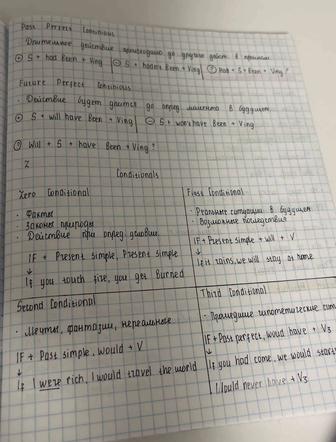 Past Perfect Continious
Длительное действие происходило до другого действ. в прошлом
+ S + had Been + Ving - S + hadn't Been + Ving ? Had + S + Been + Ving?
Future Perfect Continious
· Действие будет длится до опред. момента в будущем
+ S + will have Been + Ving - S + won't have Been + Ving
? Will + S + have Been + Ving?
Conditionals
Zero Conditional
· Факты
· Законы природы
· Действие при опред. условии
IF + Present Simple, Present Simple
↓
If you touch fire, you get Burned
First Conditional
· Реальные ситуации в будущем
· Возможные последствия
IF + Present simple + will + V
↓
If it rains, we will stay at home
Second Conditional
· Мечты, фантазии, нереальное
IF + Past simple, would + V
↓
If I were rich, I would travel the world
Third Conditional
· Прошедшие гипотетические
IF + Past perfect, woud have + V3
↓
If you had come, we would
I would never have + V3